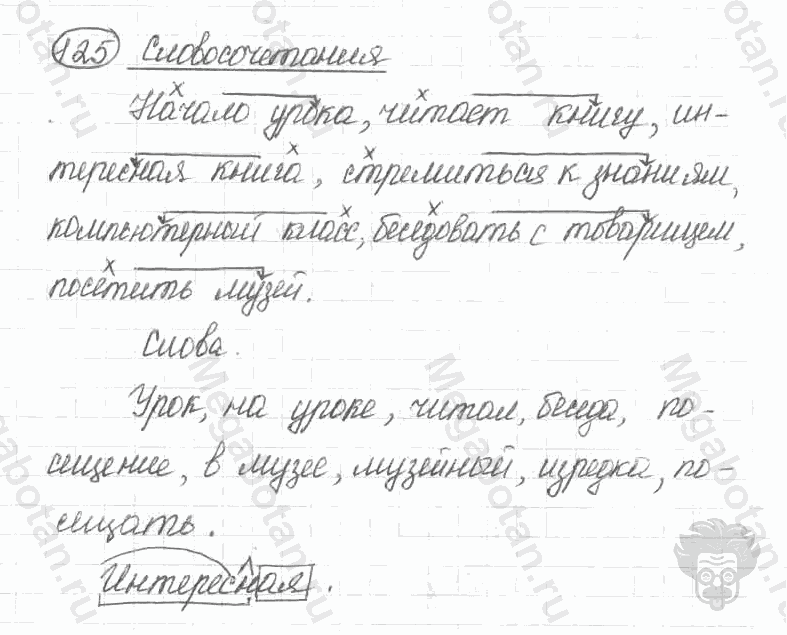 125 Словосочетания
Начало урока, читает книгу, ин-
тересная книга, стремиться к знаниям,
компьютерный класс, беседовать с товарищем,
посетить музей.
Слова.
Урок, на уроке, читал, беседа, по-
сещение, в музее, музейный, изредка, по-
сещать.
Интересная.
Megabotan.com